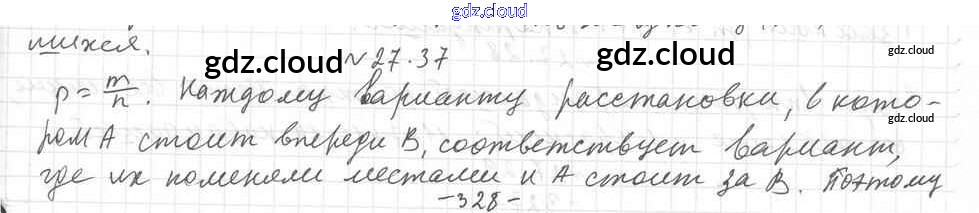 gdz.cloud
шихся.
gdz.cloud №27.37 gdz.cloud gdz.cloud
p = m/n. Каждому варианту расстановки, в кото-
gdz.cloud
ром А стоит впереди В, соответствует вариант,
где их поменяли местами и А стоит за В. Поэтому
-328-